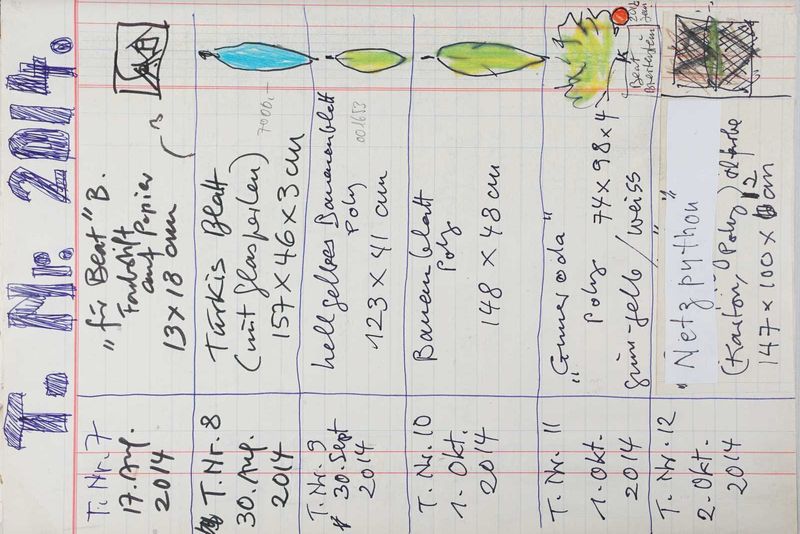 T. Nr. 2014.
T. Nr. 7
17. Aug.
2014
„für Beat" B.
Farbstift
auf Papier
13 x 18 cm
T. Nr. 8
30. Aug.
2014
Türkis Blatt
(mit Glasperlen)
157 x 46 x 3 cm
7000.-
T. Nr. 9
30. Sept
2014
hellgelbes Bananenblatt
Poly
123 x 41 cm
001653
T. Nr. 10
1. Okt.
2014
Bananenblatt
Poly
148 x 48 cm
T. Nr. 11
1. Okt.
2014
Poly 74 x 98 x 4
grün-gelb / weiss
Beat
2014
T. Nr. 12
2. Okt.
2014
"Netzpython"
(Karton, Poly)
147 x 100 x 12 cm